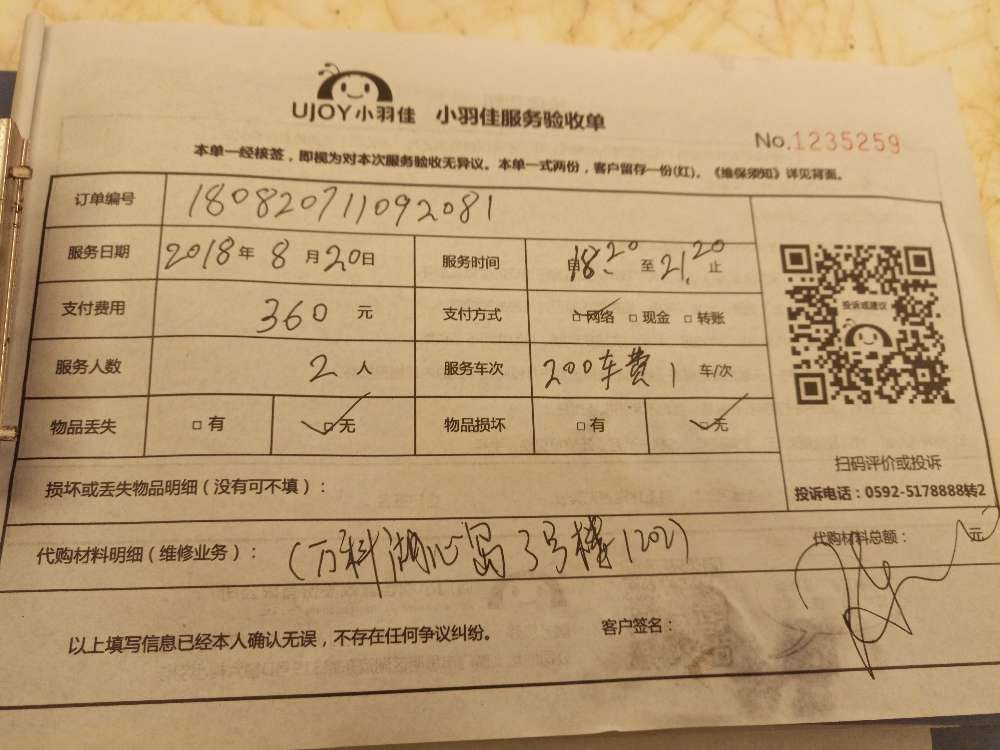 UJOY小羽佳 小羽佳服务验收单
No.1235259
本单一经核签，即视为对本次服务验收无异议。本单一式两份，客户留存一份(红)。《维保须知》详见背面。
订单编号 180820711092081
服务日期 2018年 8月20日 服务时间 18:20 至 21.20 止
支付费用 360 元 支付方式 □网络 □现金 □转账
服务人数 2人 服务车次 200车费 1 车/次
物品丢失 □有 □无 物品损坏 □有 □无
投诉或建议
扫码评价或投诉
投诉电话：0592-5178888转2
损坏或丢失物品明细（没有可不填）：
代购材料明细（维修业务）： （万科湖心岛3号楼1202） 代购材料总额： 元
以上填写信息已经本人确认无误，不存在任何争议纠纷。 客户签名：